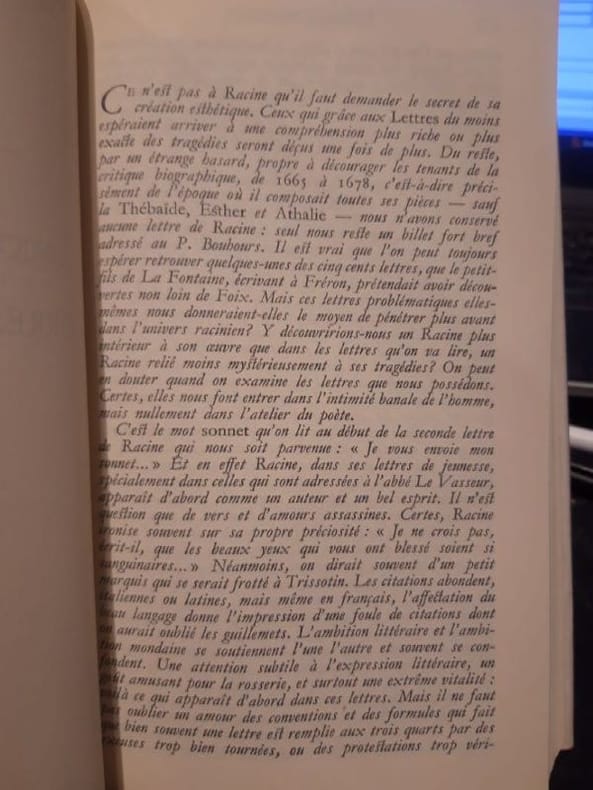 CE n'est pas à Racine qu'il faut demander le secret de sa
création esthétique. Ceux qui grâce aux Lettres du moins
espéraient arriver à une compréhension plus riche ou plus
exacte des tragédies seront déçus une fois de plus. Du reste,
par un étrange hasard, propre à décourager les tenants de la
critique biographique, de 1665 à 1678, c'est-à-dire préci-
sément de l'époque où il composait toutes ses pièces — sauf
la Thébaïde, Esther et Athalie — nous n'avons conservé
aucune lettre de Racine : seul nous reste un billet fort bref
adressé au P. Bouhours. Il est vrai que l'on peut toujours
espérer retrouver quelques-unes des cinq cents lettres, que le petit-
fils de La Fontaine, écrivant à Fréron, prétendait avoir décou-
vertes non loin de Foix. Mais ces lettres problématiques elles-
mêmes nous donneraient-elles le moyen de pénétrer plus avant
dans l'univers racinien? Y découvririons-nous un Racine plus
intérieur à son œuvre que dans les lettres qu'on va lire, un
Racine relié moins mystérieusement à ses tragédies? On peut
en douter quand on examine les lettres que nous possédons.
Certes, elles nous font entrer dans l'intimité banale de l'homme,
mais nullement dans l'atelier du poète.
C'est le mot sonnet qu'on lit au début de la seconde lettre
de Racine qui nous soit parvenue : « Je vous envoie mon
sonnet... » Et en effet Racine, dans ses lettres de jeunesse,
spécialement dans celles qui sont adressées à l'abbé Le Vasseur,
apparaît d'abord comme un auteur et un bel esprit. Il n'est
question que de vers et d'amours assassines. Certes, Racine
ironise souvent sur sa propre préciosité : « Je ne crois pas,
écrit-il, que les beaux yeux qui vous ont blessé soient si
sanguinaires... » Néanmoins, on dirait souvent d'un petit
marquis qui se serait frotté à Trissotin. Les citations abondent,
italiennes ou latines, mais même en français, l'affectation du
beau langage donne l'impression d'une foule de citations dont
on aurait oublié les guillemets. L'ambition littéraire et l'ambi-
tion mondaine se soutiennent l'une l'autre et souvent se con-
fondent. Une attention subtile à l'expression littéraire, un
goût amusant pour la rosserie, et surtout une extrême vitalité :
voilà ce qui apparaît d'abord dans ces lettres. Mais il ne faut
pas oublier un amour des conventions et des formules qui fait
que bien souvent une lettre est remplie aux trois quarts par des
trop bien tournées, ou des protestations trop véri-